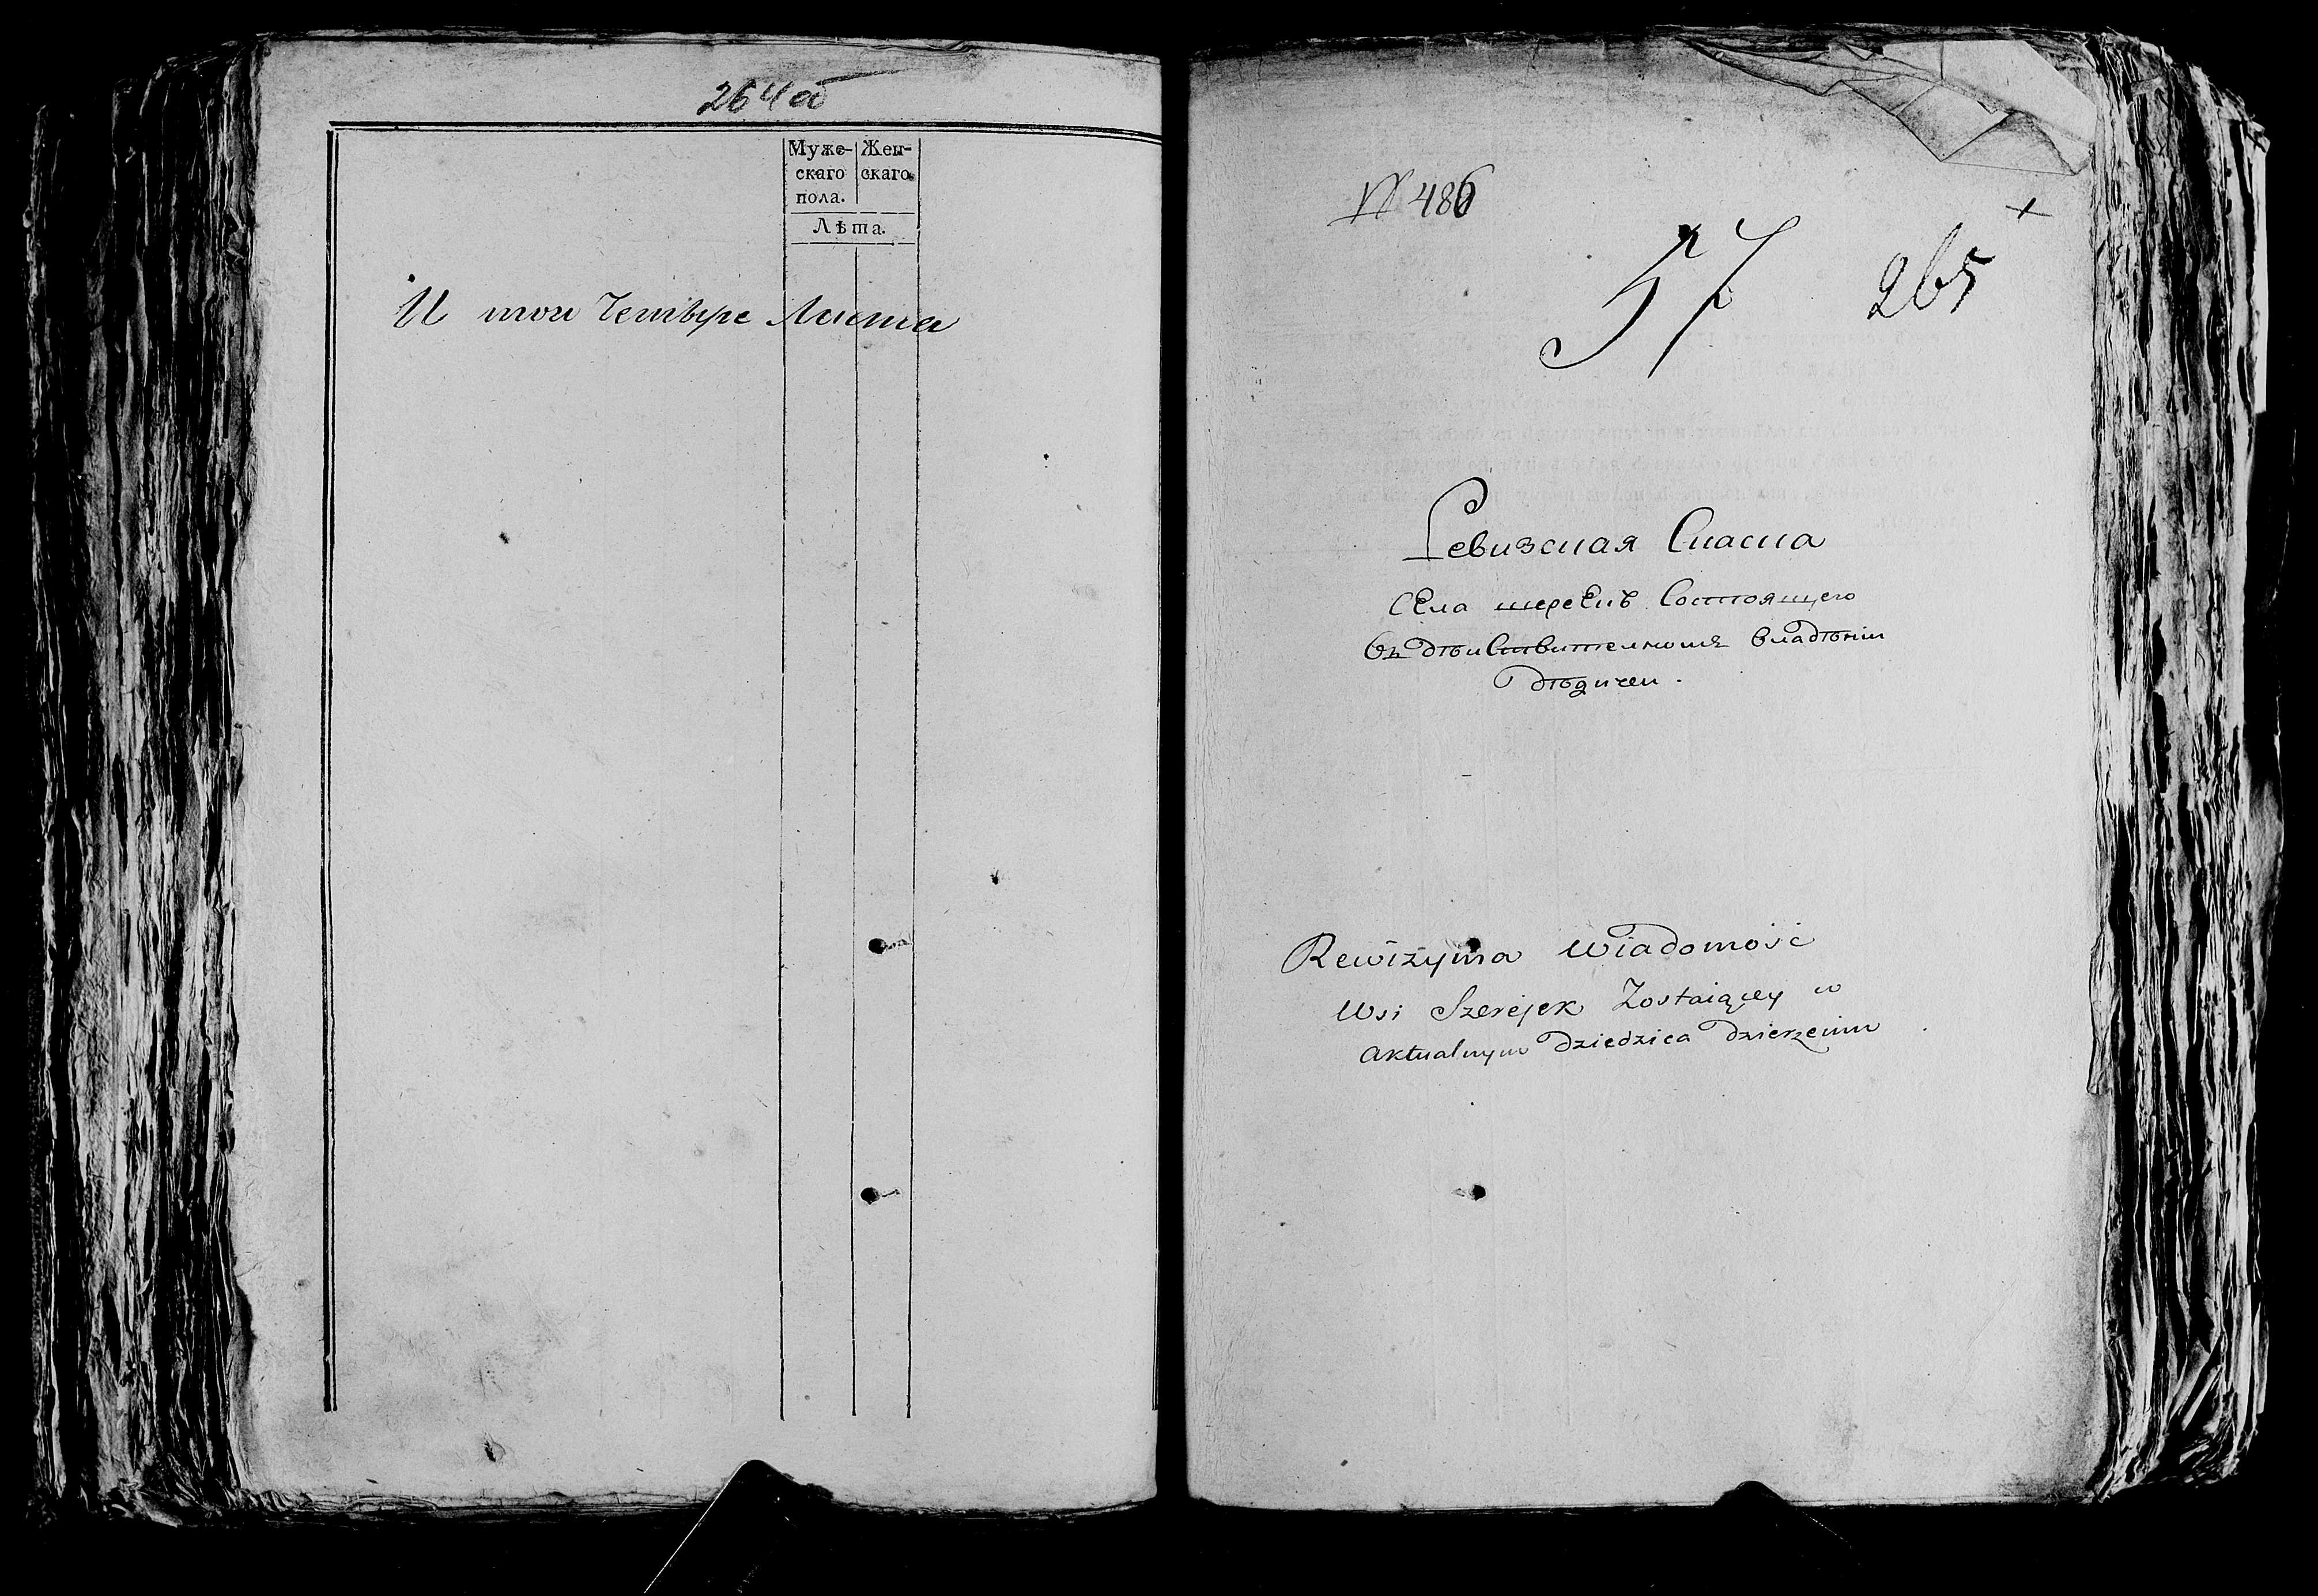 264 об
Муже-
скаго
пола.
Жен-
скаго
Лѣта.
И того Четыре Листа
№ 486
57
265
Ревизская Сказка
Села шереекъ Состоящего
Въ дѣиствителномъ владѣніи
дѣдичеи.
Rewizyina Wiadomośc
Wsi Szerejek Zostaiącey w
aktualnym dziedzica dzierzeniu